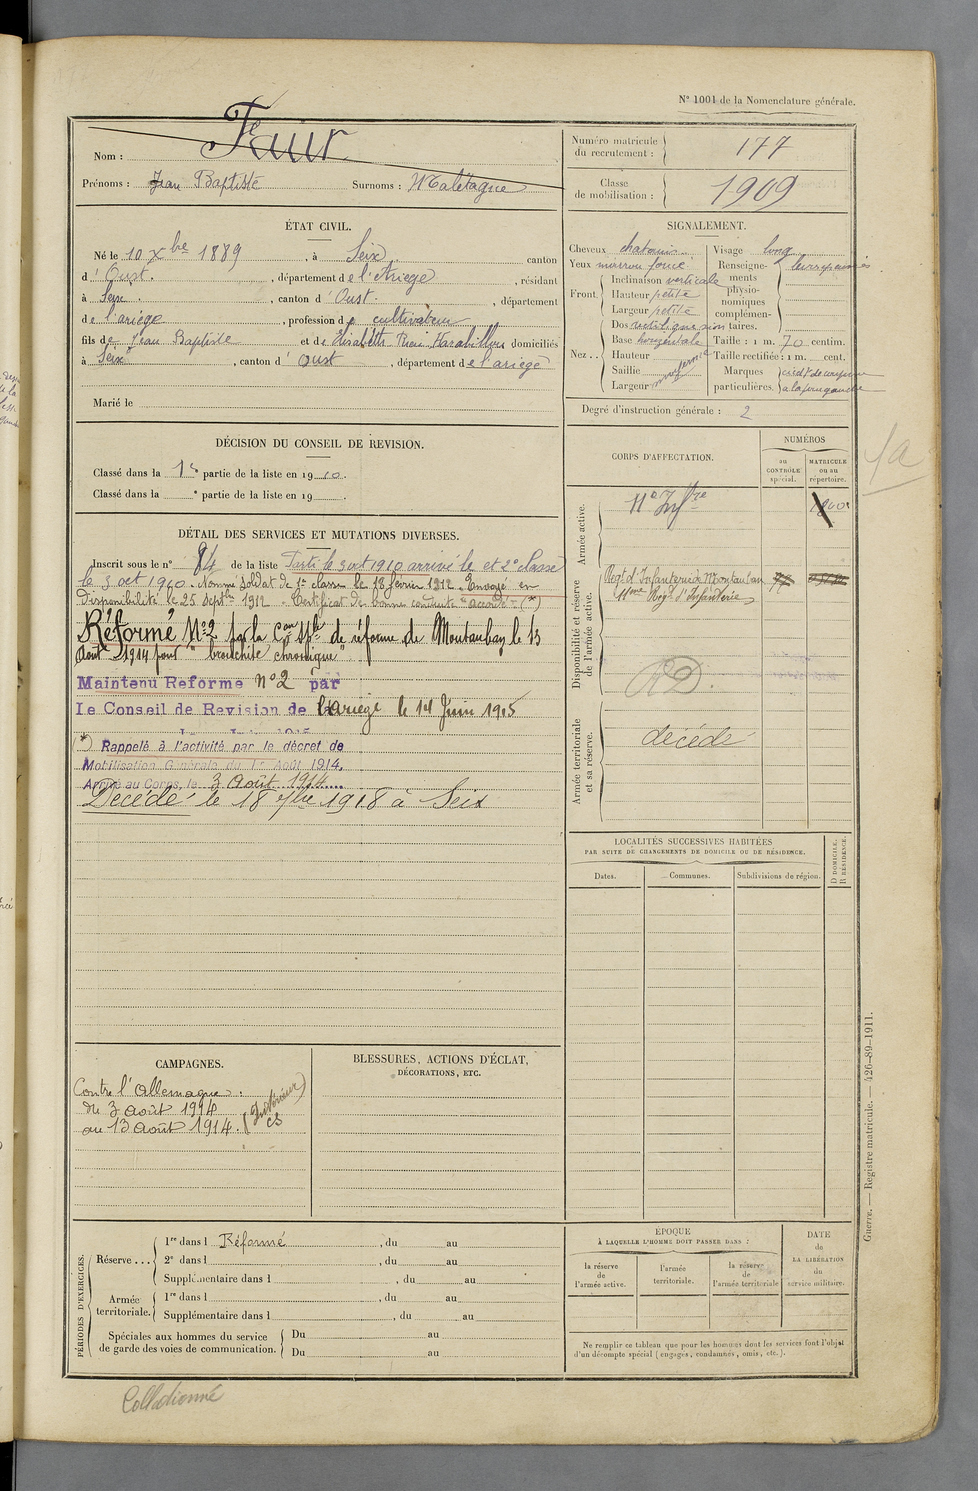 N° 1001 de la Nomenclature générale.
Nom : Faur
Prénoms : Jean Baptiste Surnoms : Maletague
Numéro matricule du recrutement : 177
Classe de mobilisation : 1909
ÉTAT CIVIL.
Né le 10 Xbre 1889, à Seix, canton
d'Oust, département de l'Ariège, résidant
à Seix, canton d'Oust, département
de l'ariège, profession de cultivateur
fils de Jean Baptiste et de Elisabeth domiciliés
à Seix, canton d'Oust, département de l'ariège
Marié le
SIGNALEMENT.
Cheveux chatains Visage long
Yeux marron foncé Renseignements physionomiques complémentaires.
Front. Inclinaison verticale
Hauteur petite
Largeur petite
Nez.. Dos rectiligne
Base horizontale Taille : 1 m. 70 centim.
Hauteur Taille rectifiée : 1 m. cent.
Saillie Marques
Largeur particulières.
Degré d'instruction générale : 2
DÉCISION DU CONSEIL DE REVISION.
Classé dans la 1re partie de la liste en 1910.
Classé dans la e partie de la liste en 19
CORPS D'AFFECTATION.
NUMÉROS
au CONTRÔLE spécial.
MATRICULE ou au répertoire.
Armée active.
11e Inftre
Disponibilité et réserve de l'armée active.
Regt d'Infanterie de Montauban
11eme Regt d'Infanterie
RD.
Armée territoriale et sa réserve.
decédé
1a
DÉTAIL DES SERVICES ET MUTATIONS DIVERSES.
Inscrit sous le n° 84 de la liste Parti le 3 oct 1910 arrivé le et 2e classe
le 3 oct 1910. Nommé soldat de 1re classe le 18 février 1912. Envoyé en
disponibilité le 25 septbre 1912. Certificat de bonne conduite "accordé" (*)
Réformé N°2 par la Con Sple de réforme de Montauban le 13
Août 1914 pour "bronchite chronique"
Maintenu Reforme n°2 par
Le Conseil de Revision de l'Ariège le 14 Juin 1915
(*) Rappelé à l'activité par le décret de
Mobilisation Générale du 1er Août 1914,
Arrivé au Corps, le 3 Août 1914
Décédé le 18 1918 à Seix
LOCALITÉS SUCCESSIVES HABITÉES
PAR SUITE DE CHANGEMENTS DE DOMICILE OU DE RÉSIDENCE.
Dates. Communes. Subdivisions de région. D DOMICILE. R RÉSIDENCE.
CAMPAGNES.
Contre l'allemagne :
du 3 août 1914
au 13 Août 1914. (Intérieur) CS
BLESSURES, ACTIONS D'ÉCLAT,
DÉCORATIONS, ETC.
PÉRIODES D'EXERCICES.
Réserve ... 1re dans l Réformé, du au
2e dans l, du au
Supplémentaire dans l, du au
Armée territoriale. 1re dans l, du au
Supplémentaire dans l, du au
Spéciales aux hommes du service de garde des voies de communication. Du au
Du au
ÉPOQUE
À LAQUELLE L'HOMME DOIT PASSER DANS :
la réserve de l'armée active.
l'armée territoriale.
la réserve de l'armée territoriale
DATE de LA LIBÉRATION du service militaire.
Ne remplir ce tableau que pour les hommes dont les services font l'objet
d'un décompte spécial (engagés, condamnés, omis, etc.).
Guerre. — Registre matricule. — 426-89-1911.
Collationné